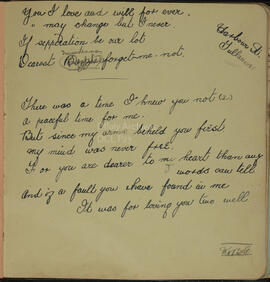 You I love and will for ever.
" may change but I never
If seperation be our lot
Dearest forget-me-not
Harbour St.
There was a time I knew you not (2)
a peaceful time for me.
But since my beheld you first
my mind was never free.
For you are dearer to my heart than any
words can tell
And if a fault you have found in me
It was for loving you two well